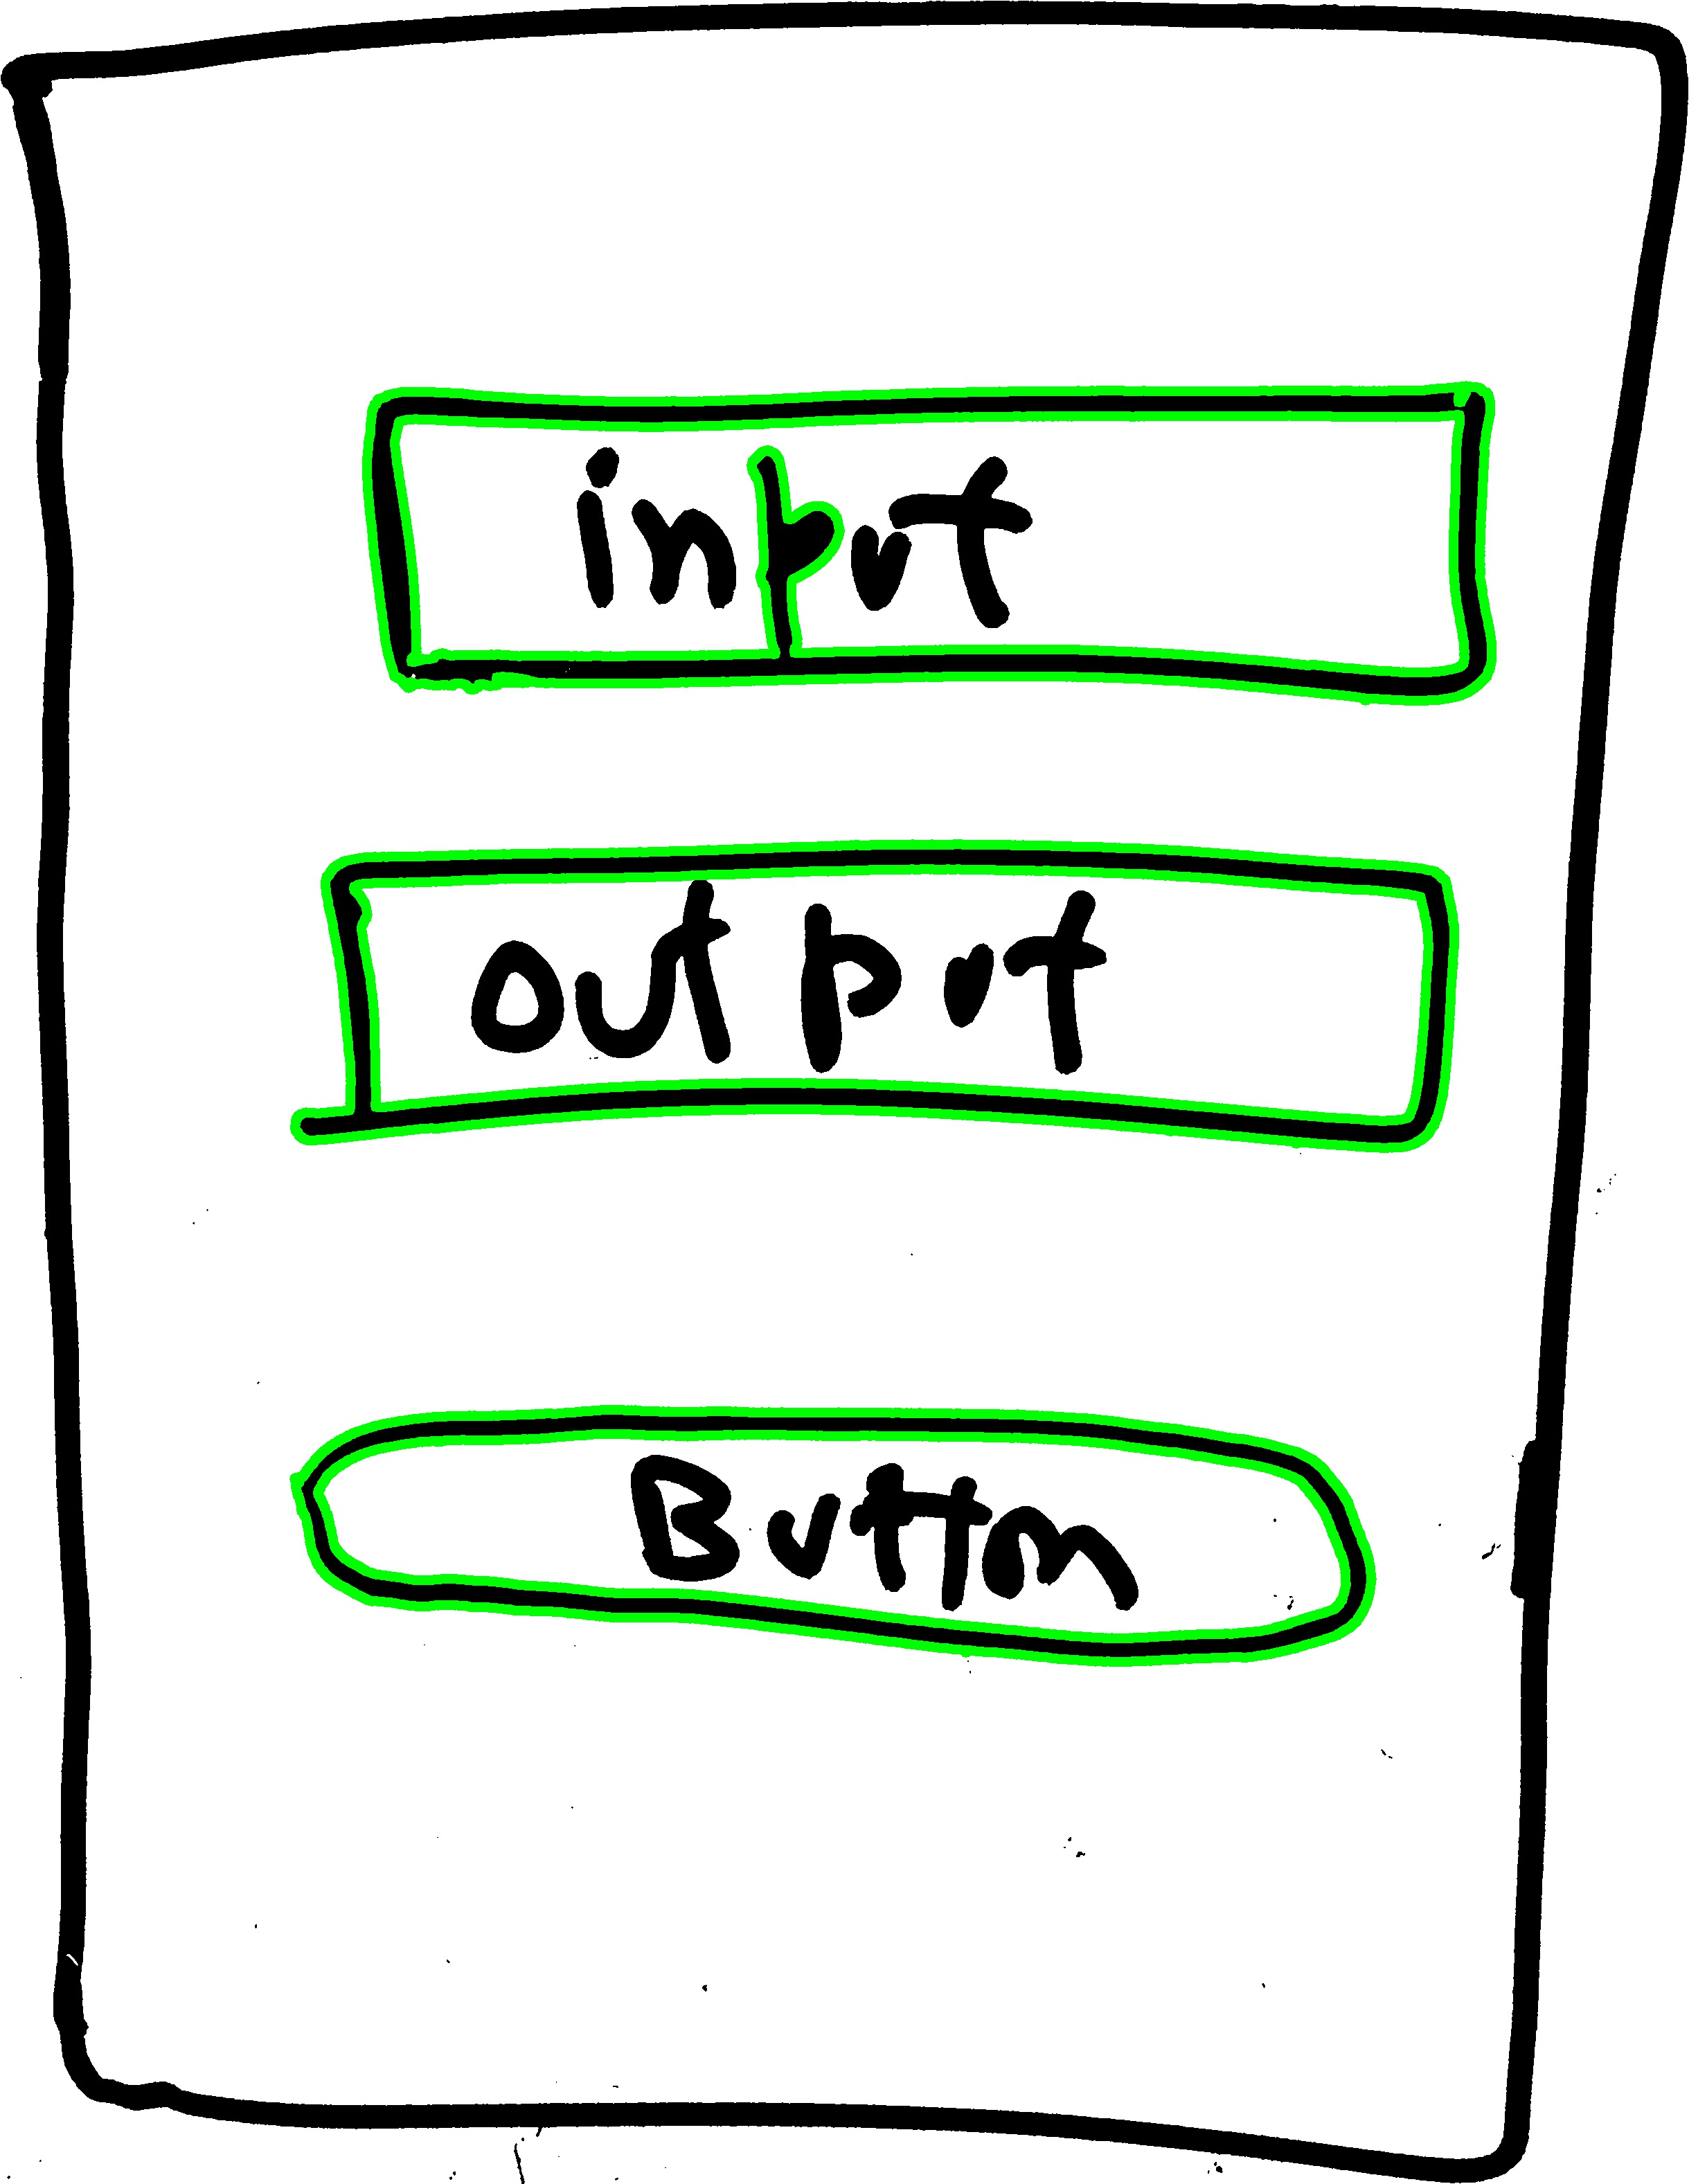 input
output
Button